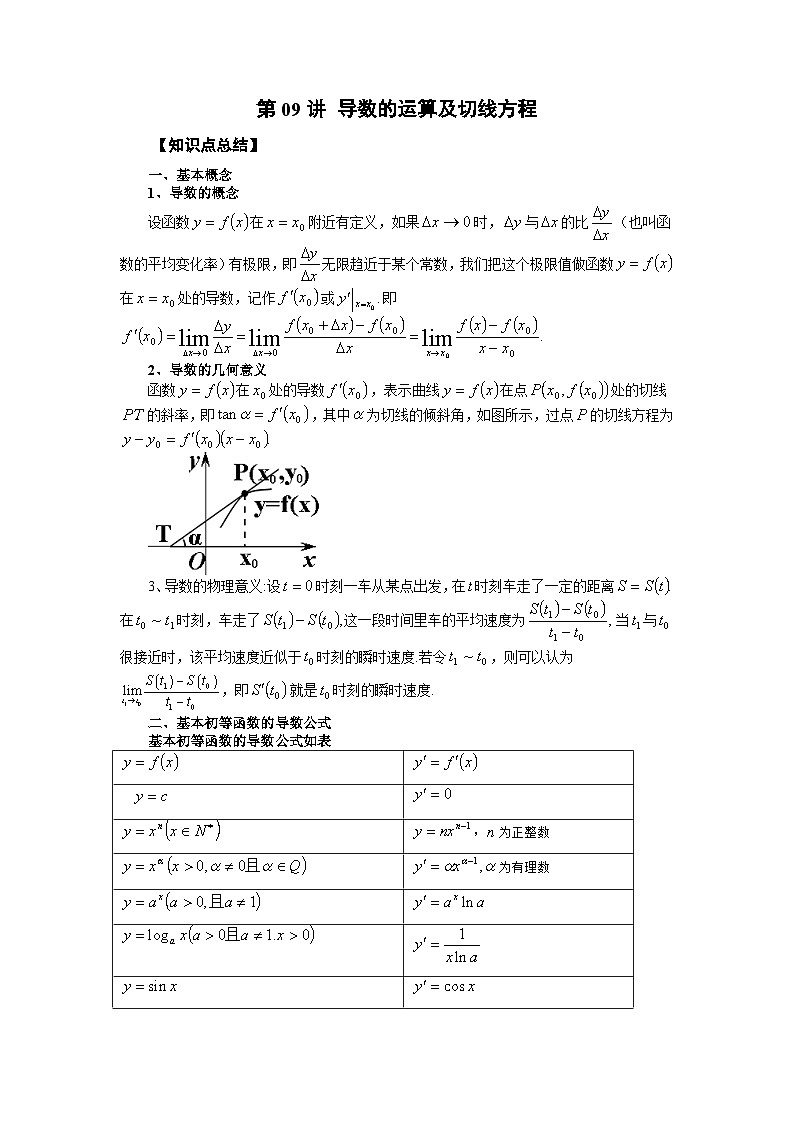 第 09 讲 导数的运算及切线方程
【知识点总结】
一、基本概念
1、导数的概念
设函数 y = f(x) 在 x = x₀ 附近有定义，如果 Δx → 0 时，Δy 与 Δx 的比 Δy/Δx（也叫函
数的平均变化率）有极限，即 Δy/Δx 无限趋近于某个常数，我们把这个极限值做函数 y = f(x)
在 x = x₀ 处的导数，记作 f′(x₀) 或 y′|ₓ₌ₓ₀. 即
f′(x₀) = lim_{Δx→0} Δy/Δx = lim_{Δx→0} (f(x₀ + Δx) − f(x₀))/Δx = lim_{x→x₀} (f(x) − f(x₀))/(x − x₀).
2、导数的几何意义
函数 y = f(x) 在 x₀ 处的导数 f′(x₀)，表示曲线 y = f(x) 在点 P(x₀, f(x₀)) 处的切线
PT 的斜率，即 tan α = f′(x₀)，其中 α 为切线的倾斜角，如图所示，过点 P 的切线方程为
y − y₀ = f′(x₀)(x − x₀)
y
P(x₀,y₀)
y=f(x)
T α
O x₀ x
3、导数的物理意义:设 t = 0 时刻一车从某点出发，在 t 时刻车走了一定的距离 S = S(t)
在 t₀ ~ t₁ 时刻，车走了 S(t₁) − S(t₀),这一段时间里车的平均速度为 (S(t₁) − S(t₀))/(t₁ − t₀), 当 t₁ 与 t₀
很接近时，该平均速度近似于 t₀ 时刻的瞬时速度.若令 t₁ ~ t₀，则可以认为
lim_{t₁→t₀} (S(t₁) − S(t₀))/(t₁ − t₀)，即 S′(t₀) 就是 t₀ 时刻的瞬时速度.
二、基本初等函数的导数公式
基本初等函数的导数公式如表
y = f(x) y′ = f′(x)
y = c y′ = 0
y = xⁿ(x ∈ N*) y = nxⁿ⁻¹，n 为正整数
y = x^α(x > 0, α ≠ 0且α ∈ Q) y′ = αx^(α−1), α 为有理数
y = aˣ(a > 0, 且a ≠ 1) y′ = aˣ ln a
y = logₐ x(a > 0且a ≠ 1.x > 0) y′ = 1/(x ln a)
y = sin x y′ = cos x